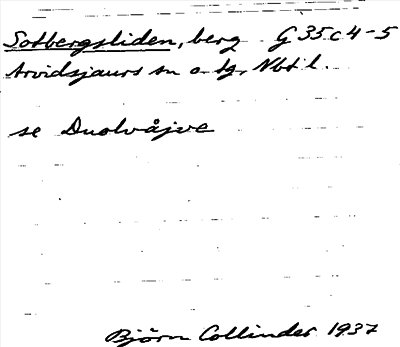 Sotbergsliden, berg G 35 c 4-5
Arvidsjaurs sn o. tg, Nbt l.
se Duolvåjve
Björn Collinder 1937